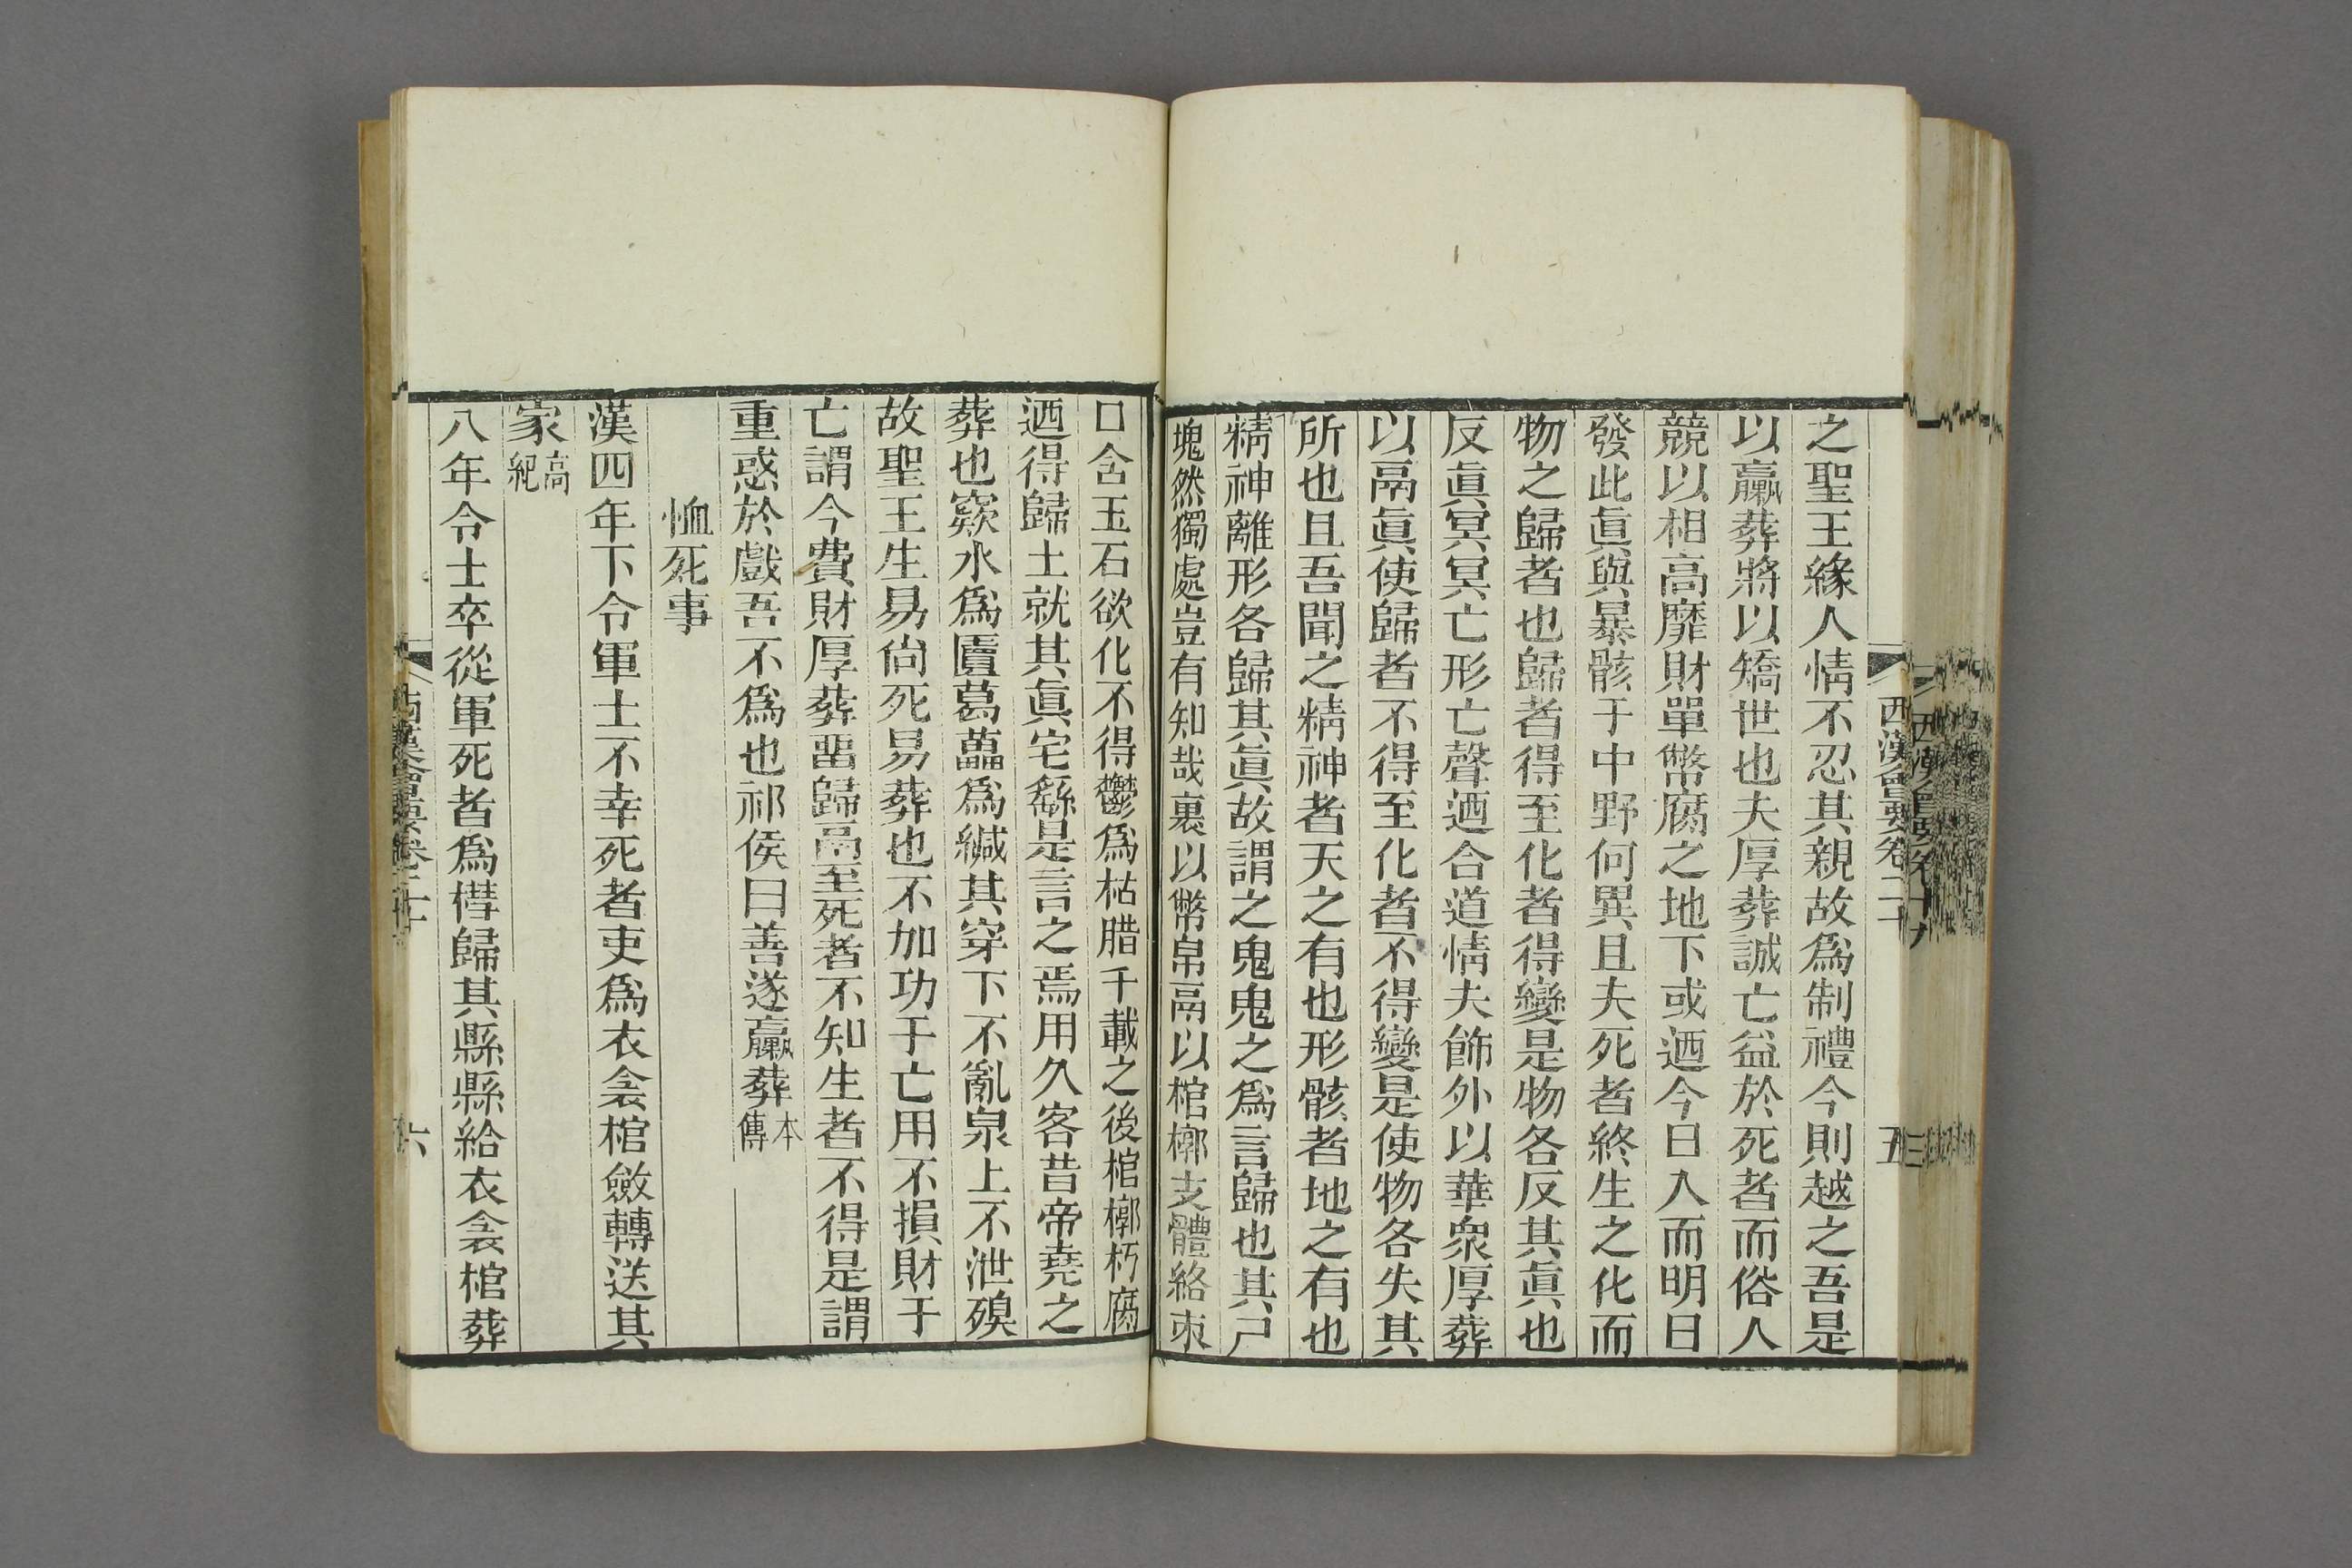 西漢會要卷二十
五
之聖王緣人情不忍其親故爲制禮今則越之吾是
以臝葬將以矯世也夫厚葬誠亡益於死者而俗人
競以相高靡財單幣腐之地下或迺今日入而明日
發此眞與暴骸于中野何異且夫死者終生之化而
物之歸者也歸者得至化者得變是物各反其眞也
反眞冥冥亡形亡聲迺合道情夫飾外以華衆厚葬
以鬲眞使歸者不得至化者不得變是使物各失其
所也且吾聞之精神者天之有也形骸者地之有也
精神離形各歸其眞故謂之鬼鬼之爲言歸也其尸
塊然獨處豈有知哉裹以幣帛鬲以棺槨支體絡束
口含玉石欲化不得鬱爲枯腊千載之後棺槨朽腐
迺得歸土就其眞宅繇是言之焉用久客昔帝堯之
葬也窾木爲匵葛藟爲緘其穿下不亂泉上不泄殠
故聖王生易尙死易葬也不加功于亡用不損財于
亡謂今費財厚葬畱歸鬲至死者不知生者不得是謂
重惑於戲吾不爲也祁侯曰善遂臝葬本傳
恤死事
漢四年下令軍士不幸死者吏爲衣衾棺斂轉送其
家高紀
八年令士卒從軍死者爲槥歸其縣縣給衣衾棺葬
西漢會要卷二十
六